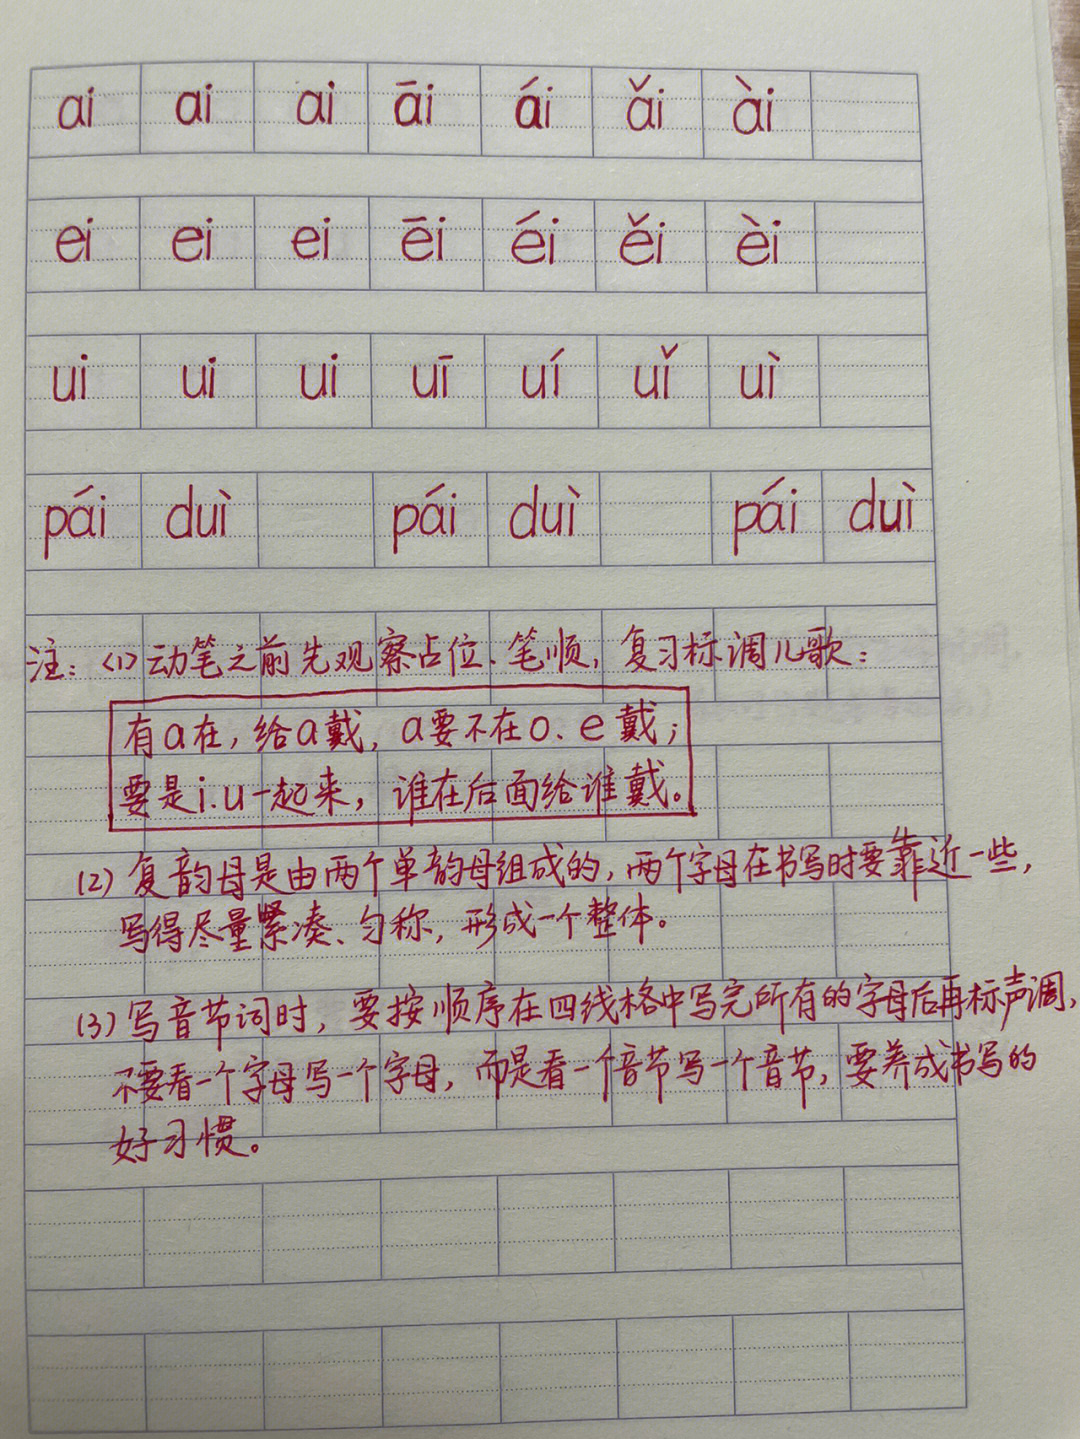 ai ai ai āi ái ǎi ài
ei ei ei ēi éi ěi èi
ui ui ui uī uí uǐ uì
pái duì pái duì pái duì
注：(1)动笔之前先观察占位、笔顺，复习标调儿歌：
有a在，给a戴，a要不在o、e戴；
要是i.u一起来，谁在后面给谁戴。
(2)复韵母是由两个单韵母组成的，两个字母在书写时要靠近一些，
写得尽量紧凑、匀称，形成一个整体。
(3)写音节词时，要按顺序在四线格中写完所有的字母后再标声调，
不要看一个字母写一个字母，而是看一个音节写一个音节，要养成书写的
好习惯。